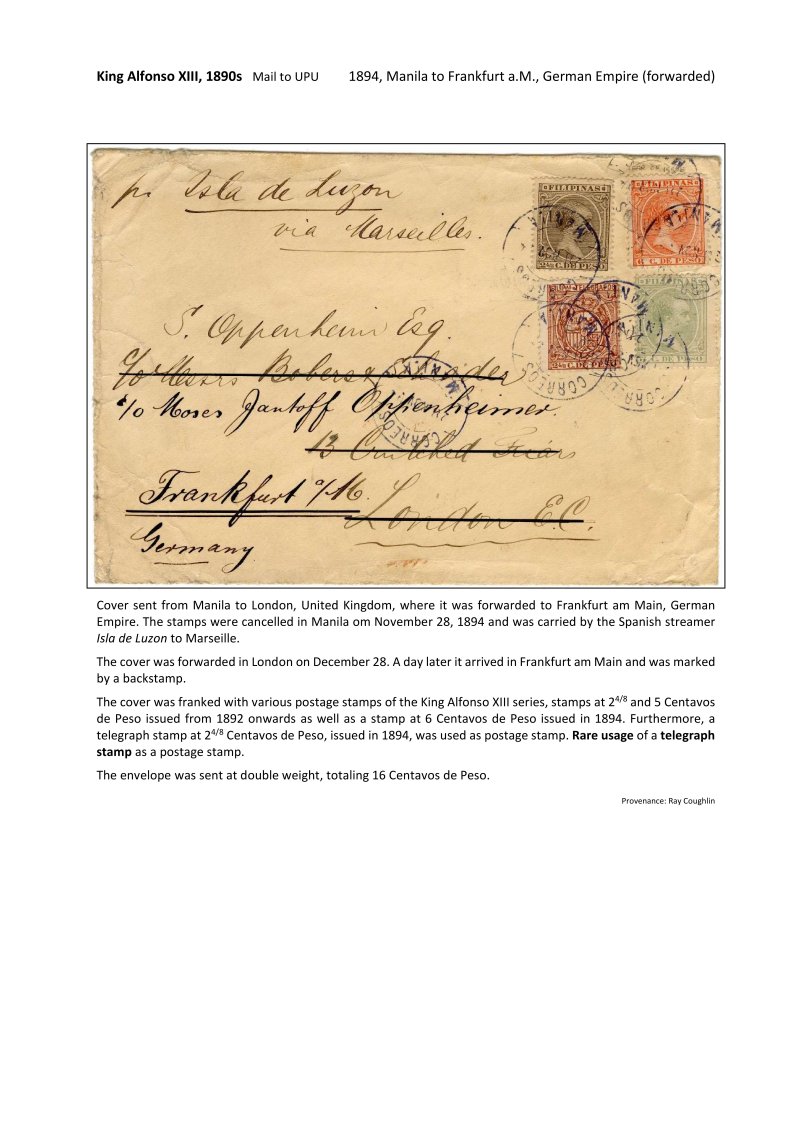 King Alfonso XIII, 1890s Mail to UPU 1894, Manila to Frankfurt a.M., German Empire (forwarded)
pr Isla de Luzon
via Marseilles.
FILIPINAS
FILIPINAS
6 C. DE PESO
FILIPINAS
C. DE PESO
MANILA
CORREOS
S. Oppenheim Esq.
c/o Messrs
c/o Moses Jantoff Oppenheimer.
13 Crutched Friars
Frankfurt a/M.
London E.C.
Germany
Cover sent from Manila to London, United Kingdom, where it was forwarded to Frankfurt am Main, German
Empire. The stamps were cancelled in Manila om November 28, 1894 and was carried by the Spanish streamer
Isla de Luzon to Marseille.
The cover was forwarded in London on December 28. A day later it arrived in Frankfurt am Main and was marked
by a backstamp.
The cover was franked with various postage stamps of the King Alfonso XIII series, stamps at 2 4/8 and 5 Centavos
de Peso issued from 1892 onwards as well as a stamp at 6 Centavos de Peso issued in 1894. Furthermore, a
telegraph stamp at 2 4/8 Centavos de Peso, issued in 1894, was used as postage stamp. Rare usage of a telegraph
stamp as a postage stamp.
The envelope was sent at double weight, totaling 16 Centavos de Peso.
Provenance: Ray Coughlin